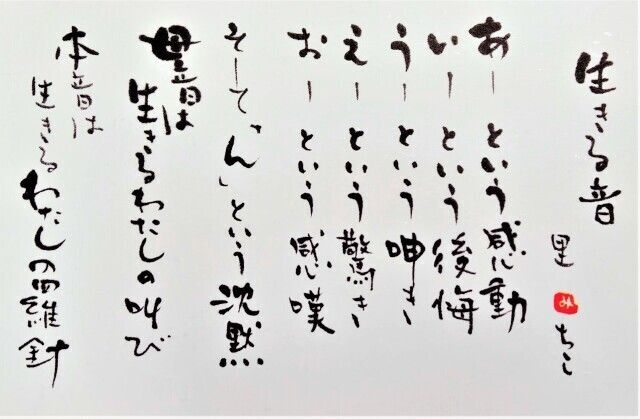 生きる音
里 みちこ
あーという感動
いーという後悔
うーという呻き
えーという驚き
おーという感嘆
そして「ん」という沈黙…
母音は
生きるわたしの叫び
本音は
生きるわたしの羅針